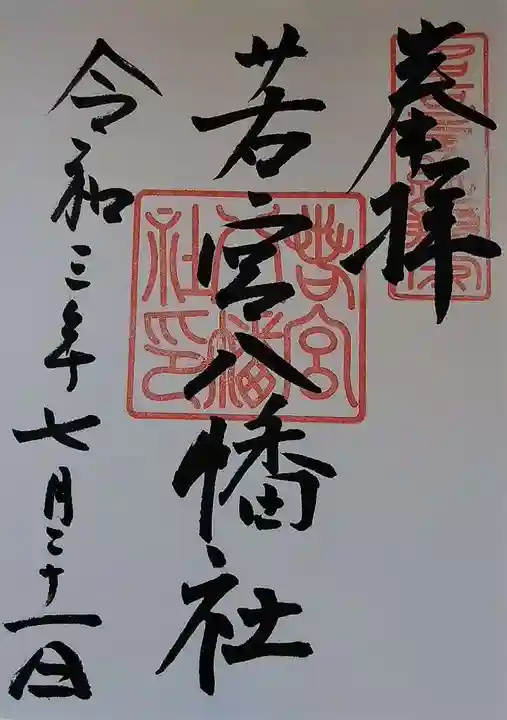 奉拝
若宮八幡社
若宮
八幡
社印
令和三年七月二十一日